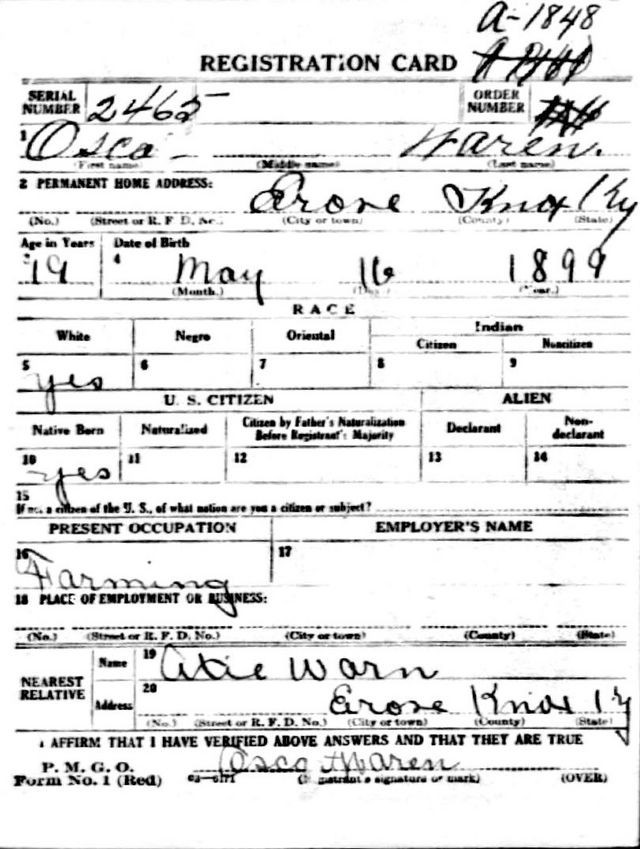 A-1848
REGISTRATION CARD
SERIAL NUMBER 2465 ORDER NUMBER
1 Osco Waren.
(First name) (Middle name) (Last name)
2 PERMANENT HOME ADDRESS: Erose Knox Ky
(No.) (Street or R. F. D. No.) (City or town) (County) (State)
Age in Years Date of Birth
19 4 May 16 1899
(Month.) (Day.) (Year.)
RACE
White Negro Oriental Indian
Citizen Noncitizen
5 6 7 8 9
yes
U. S. CITIZEN ALIEN
Native Born Naturalized Citizen by Father's Naturalization Before Registrant's Majority Declarant Non-declarant
10 11 12 13 14
yes
15
If not a citizen of the U. S., of what nation are you a citizen or subject?
PRESENT OCCUPATION EMPLOYER'S NAME
16 17
Farming
18 PLACE OF EMPLOYMENT OR BUSINESS:
(No.) (Street or R. F. D. No.) (City or town) (County) (State)
NEAREST RELATIVE Name 19 Warn
Address 20 Erose Knox Ky
(No.) (Street or R. F. D. No.) (City or town) (County) (State)
I AFFIRM THAT I HAVE VERIFIED ABOVE ANSWERS AND THAT THEY ARE TRUE
P. M. G. O.
Form No. 1 (Red) 03-6171 Osco Waren
(Registrant's signature or mark) (OVER)